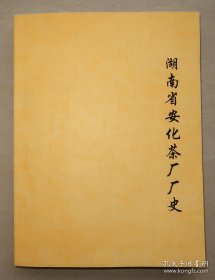 湖南省安化茶厂厂史